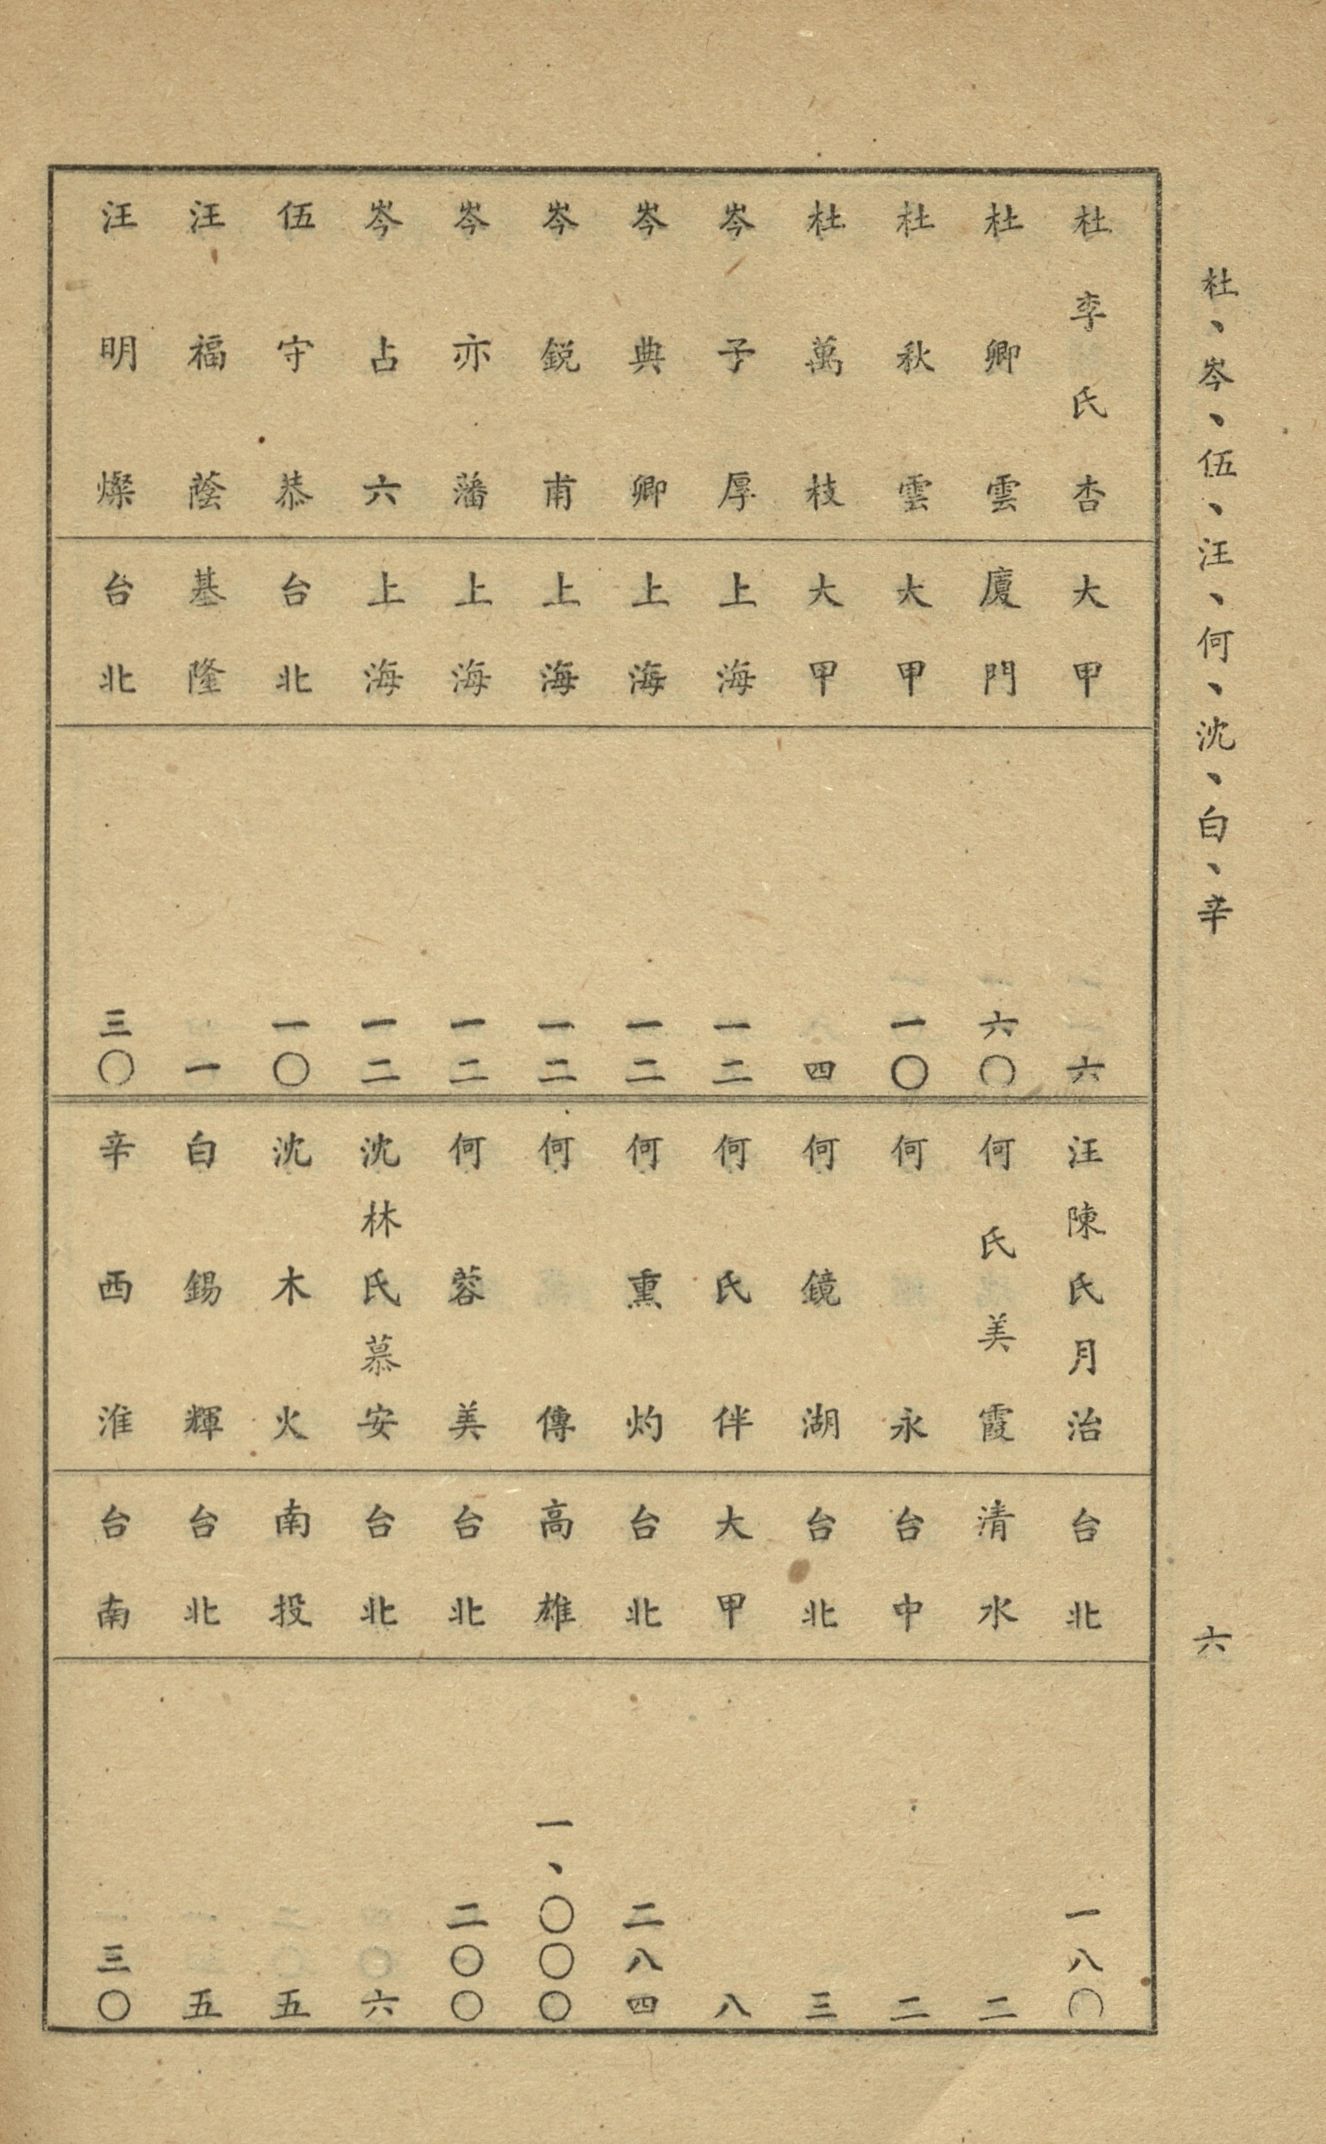 杜、岑、伍、汪、何、沈、白、辛
六
杜李氏杏 大甲 六
杜卿雲 廈門 六〇
杜秋雲 大甲 一〇
杜萬枝 大甲 四
岑子厚 上海 一二
岑典卿 上海 一二
岑銳甫 上海 一二
岑亦藩 上海 一二
岑占六 上海 一二
伍守恭 台北 一〇
汪福蔭 基隆 一
汪明燦 台北 三〇
汪陳氏月治 台北 一八〇
何氏美霞 清水 二
何永 台中 二
何鏡湖 台北 三
何氏伴 大甲 八
何熏灼 台北 二八四
何傳 高雄 一、〇〇〇
何蓉美 台北 二〇〇
沈林氏慕安 台北 六
沈木火 南投 五
白錫輝 台北 五
辛西淮 台南 三〇